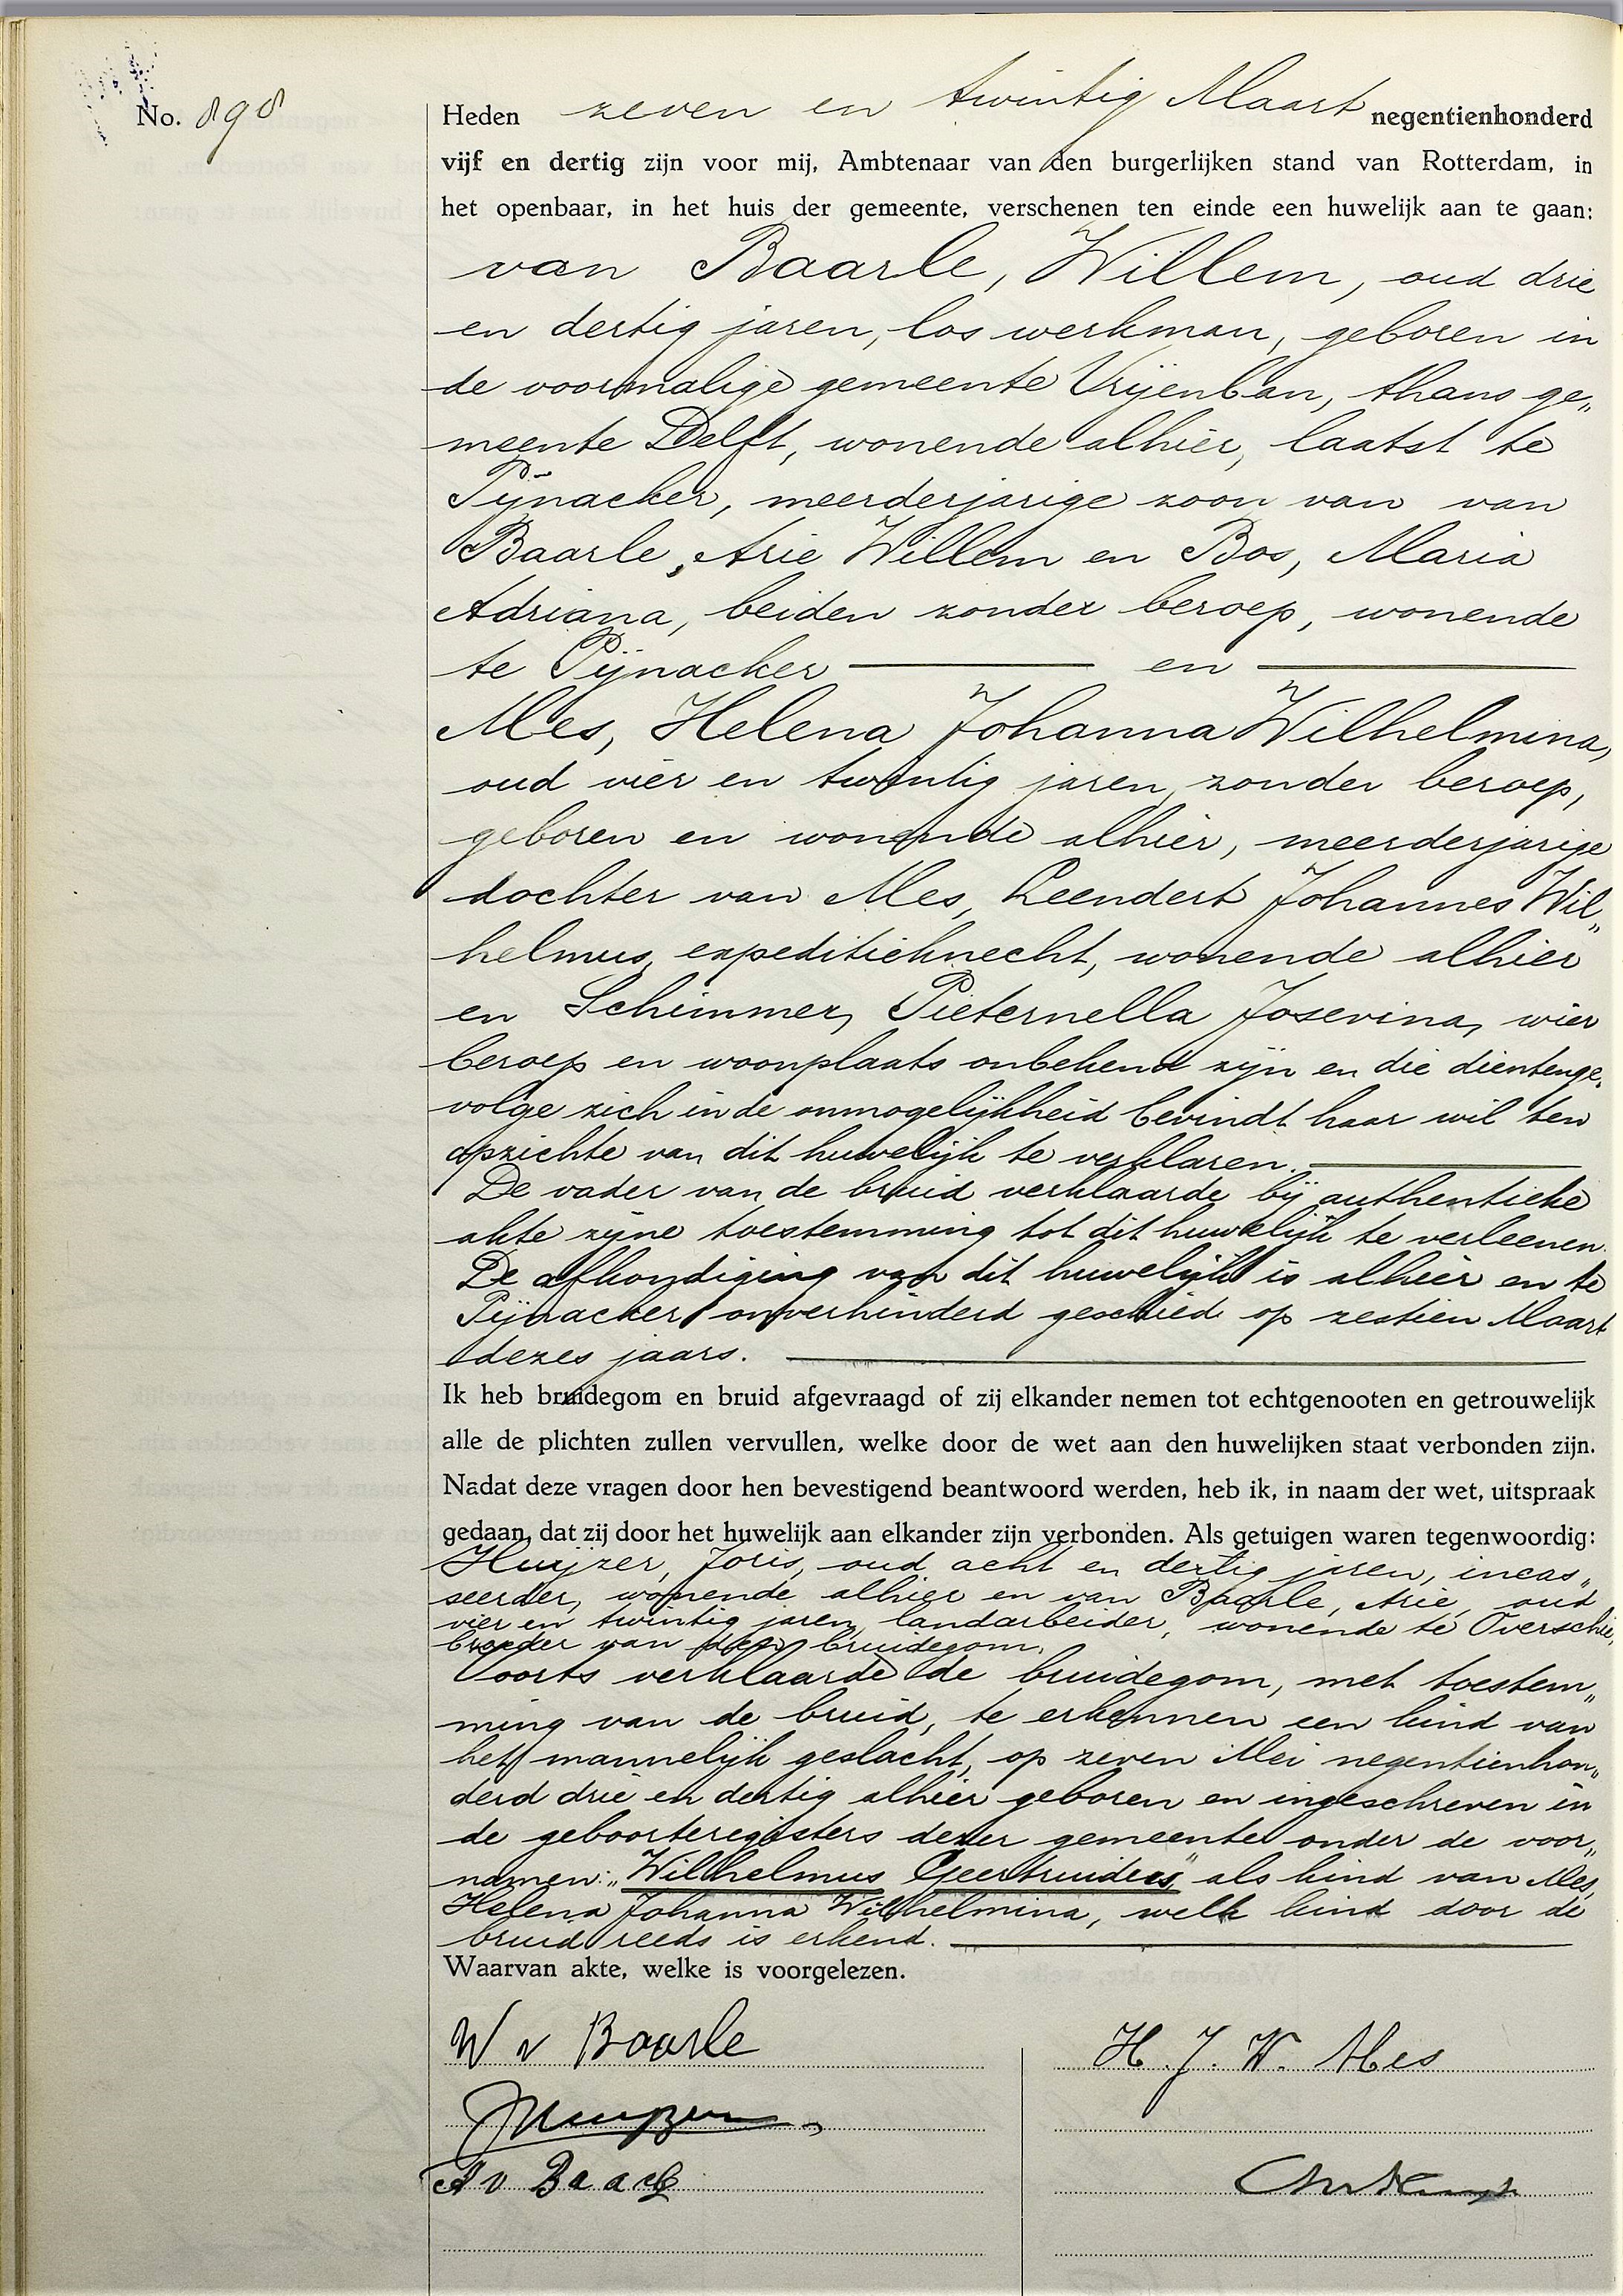 No. 898
Heden zeven en twintig Maart negentienhonderd
vijf en dertig zijn voor mij, Ambtenaar van den burgerlijken stand van Rotterdam, in
het openbaar, in het huis der gemeente, verschenen ten einde een huwelijk aan te gaan:
van Baarle, Willem, oud drie
en dertig jaren, los werkman, geboren in
de voormalige gemeente Vrijenban, thans ge„
meente Delft, wonende alhier, laatst te
Pijnacker, meerderjarige zoon van van
Baarle, Arie Willem en Bos, Maria
Adriana, beiden zonder beroep, wonende
te Pijnacker en
Mes, Helena Johanna Wilhelmina,
oud vier en twintig jaren, zonder beroep,
geboren en wonende alhier, meerderjarige
dochter van Mes, Leendert Johannes Wil„
helmus, expeditieknecht, wonende alhier
en Schimmer, Pieternella Josevina, wier
beroep en woonplaats onbekend zijn en die dientenge„
volge zich in de onmogelijkheid bevindt haar wil ten
opzichte van dit huwelijk te verklaren.
De vader van de bruid verklaarde bij authentieke
akte zijne toestemming tot dit huwelijk te verleenen.
De afkondiging van dit huwelijk is alhier en te
Pijnacker onverhinderd geschied op zestien Maart
dezes jaars.
Ik heb bruidegom en bruid afgevraagd of zij elkander nemen tot echtgenooten en getrouwelijk
alle de plichten zullen vervullen, welke door de wet aan den huwelijken staat verbonden zijn.
Nadat deze vragen door hen bevestigend beantwoord werden, heb ik, in naam der wet, uitspraak
gedaan, dat zij door het huwelijk aan elkander zijn verbonden. Als getuigen waren tegenwoordig:
Huijzer, Joris, oud acht en dertig jaren, incas„
seerder, wonende alhier en van Baarle, Arie, oud
vier en twintig jaren, landarbeider, wonende te Overschie,
broeder van den bruidegom.
Voorts verklaarde de bruidegom, met toestem„
ming van de bruid, te erkennen een kind van
het mannelijk geslacht, op zeven Mei negentienhon„
derd drie en dertig alhier geboren en ingeschreven in
de geboorteregisters dezer gemeente onder de voor„
namen: „Wilhelmus Geertruidus" als kind van Mes,
Helena Johanna Wilhelmina, welk kind door de
bruid reeds is erkend.
Waarvan akte, welke is voorgelezen.
W v Baarle
H. J. W. Mes
JHuijzer
A v Baarle